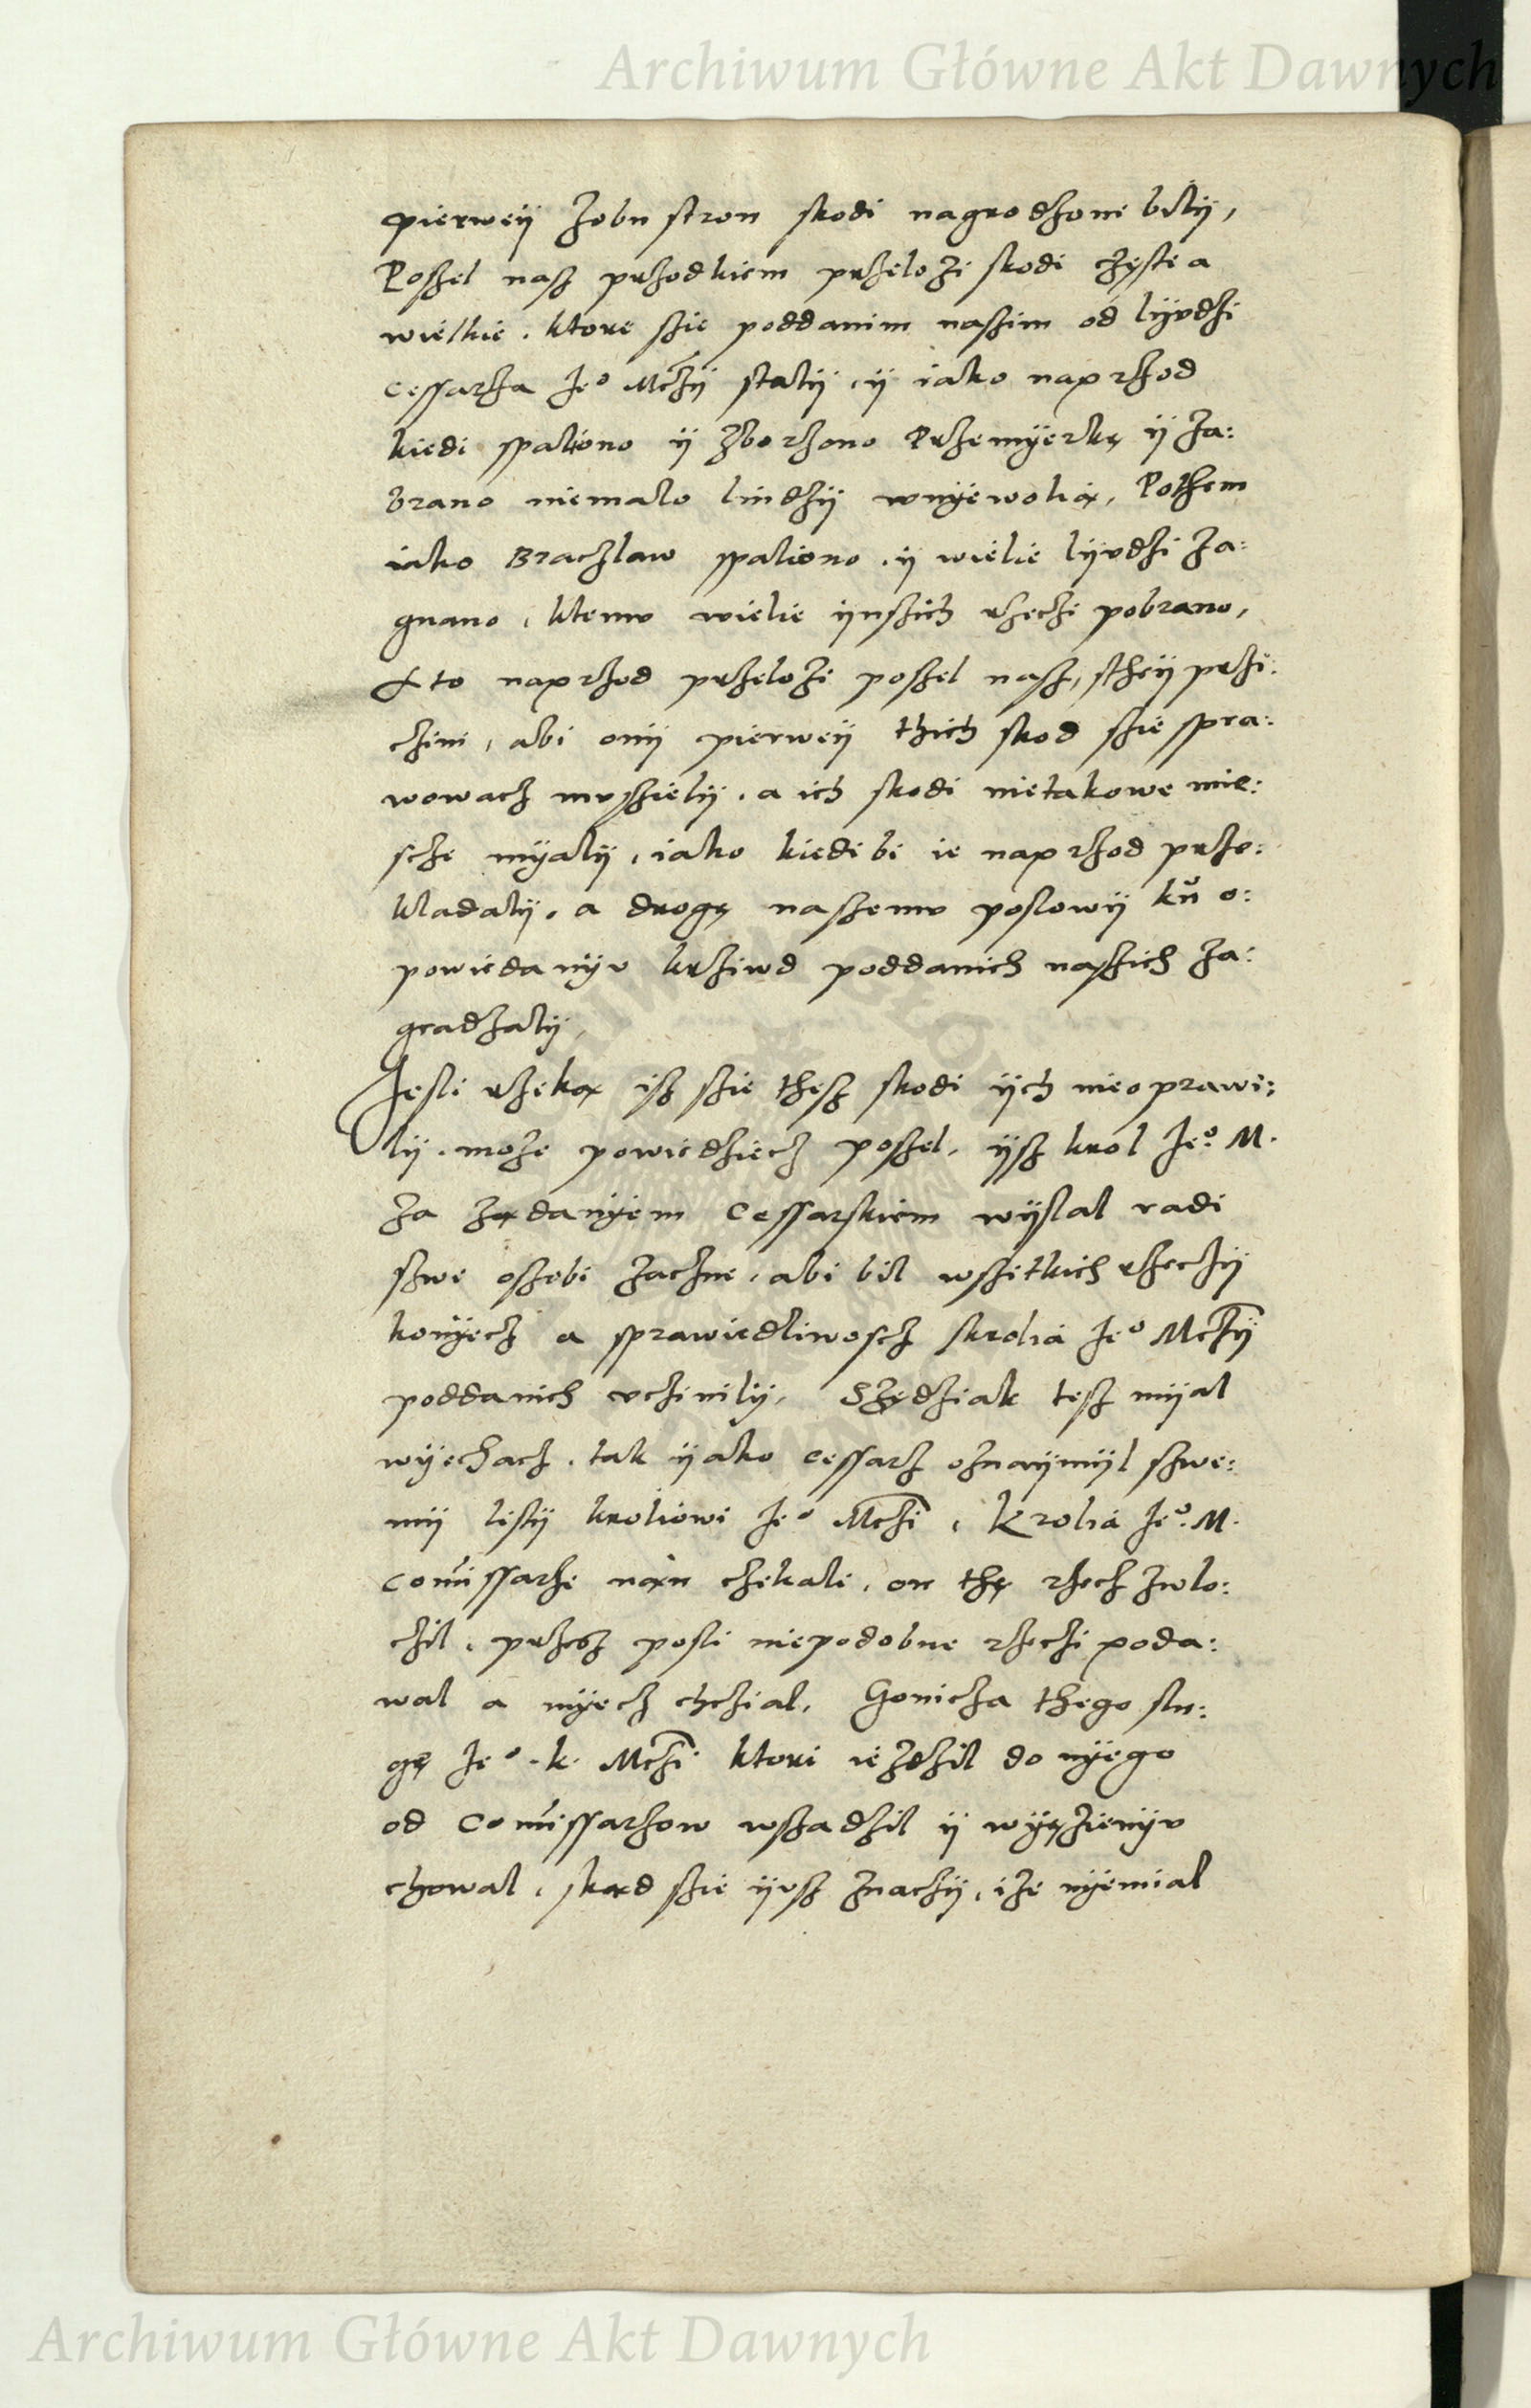 Archiwum Główne Akt Dawnych
pierweÿ zobu stron skodi nagrodzone bilÿ,
Poszel nasz przodkiem przelozi skodi częste a
wielkie. ktore szie poddanim naszim od lÿudzi
cessarza Jeº Mczÿ stalÿ, ÿ iako naprzod
kiedi spaliono ÿ zborzono Przemÿerkę ÿ za:
brano niemalo liudzÿ wnÿewolią, Pothem
iako Braczlaw spaliono. ÿ wielie lÿudzi za:
gnano, ktemu wielie ÿnszich rzeczi pobrano,
A to naprzod przelozi poszel nasz, stheÿ przi:
czini, abi onÿ pierweÿ thich skod szie spra:
wowacz muszielÿ. a ich skodi nietakowe mie:
scze mÿalÿ, iako kiedibi ie naprzod prze:
kladalÿ. a drogę naszemu poslowÿ ku o:
powiedanÿu krziwd poddanich naszich za:
gradzalÿ,
Jesli rzeką isz szie thesz skodi ÿch nieoprawi:
lÿ. moze powiedziecz poszel, ÿsz krol Jeº M.
za ządanÿem Cessarskiem wÿslal radi
szwe oszobi zaczne, abi bil wszitkich rzeczÿ
konÿecz a sprawiedliwoscz skrolia Jeº Mczÿ
poddanich uczinilÿ, Szędziak tesz mÿal
wÿechacz. tak ÿako cessarz oznaÿmÿl szwe:
mÿ listÿ kroliowi Jeº Mczi, Krolia Jeº M.
Comissarze nan czekali, on thę rzecz zwlo:
czil, przesz posli niepodobne rzeczi poda:
wal a mÿecz chczial, Gonicza thego slu:
gę Jeº K. Mczi ktori iezdzil do nÿego
od Comissarzow wszadzil ÿ wÿęzienÿu
chowal, skąd szie ÿusz znaczÿ, ize nÿemial
Archiwum Główne Akt Dawnych